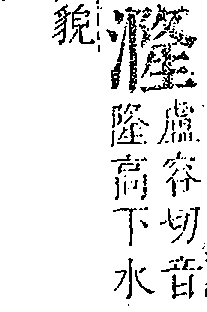 漋
盧容切音
隆高下水
貌